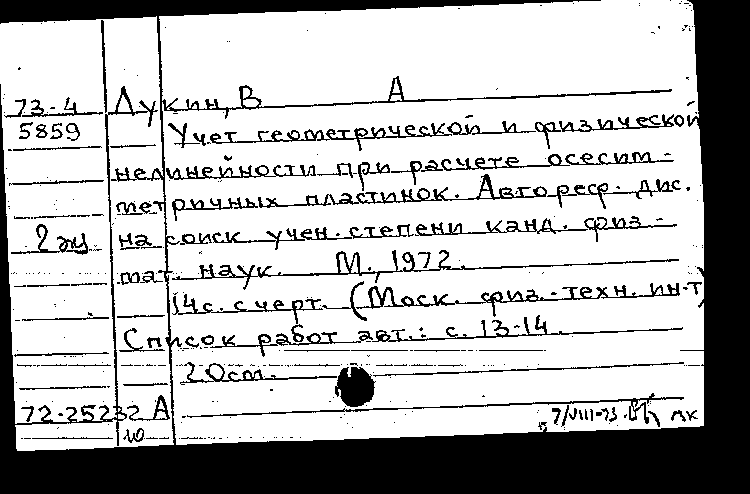 73-4 Лукин, В А
5859 Учет геометрической и физической
нелинейности при расчете осесим-
метричных пластинок. Автореф. дис.
2 экз на соиск учен. степени канд. физ-
мат. наук. М., 1972.
14с. с черт. (Моск. физ.-техн. ин-т)
Список работ авт.: с. 13-14.
2.Ост.
72-25232 А
10
7/VIII-73. мк